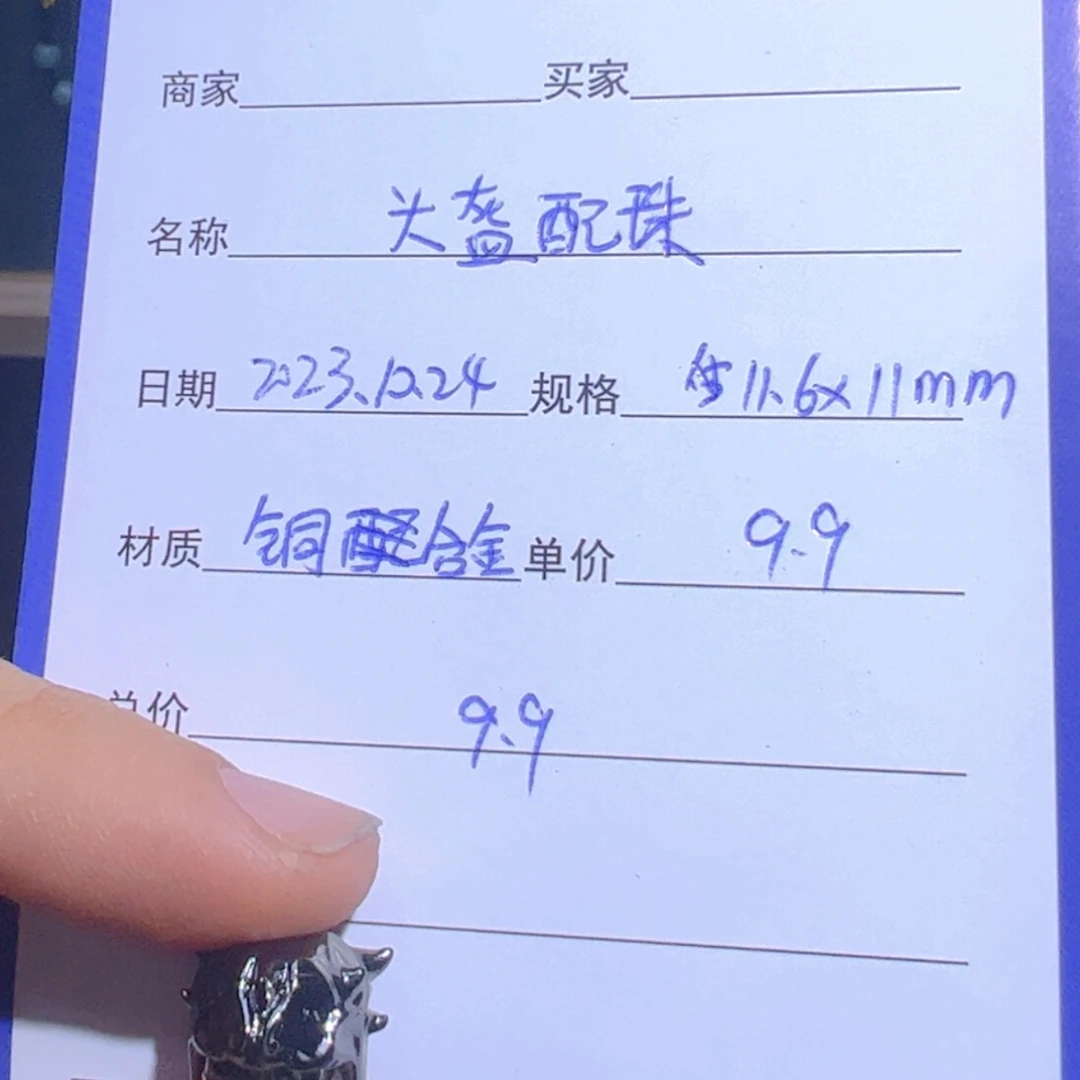 商家 买家
名称 头盔配珠
日期 2023.12.24 规格 约11.6x11mm
材质 铜合金 单价 9.9
总价 9.9